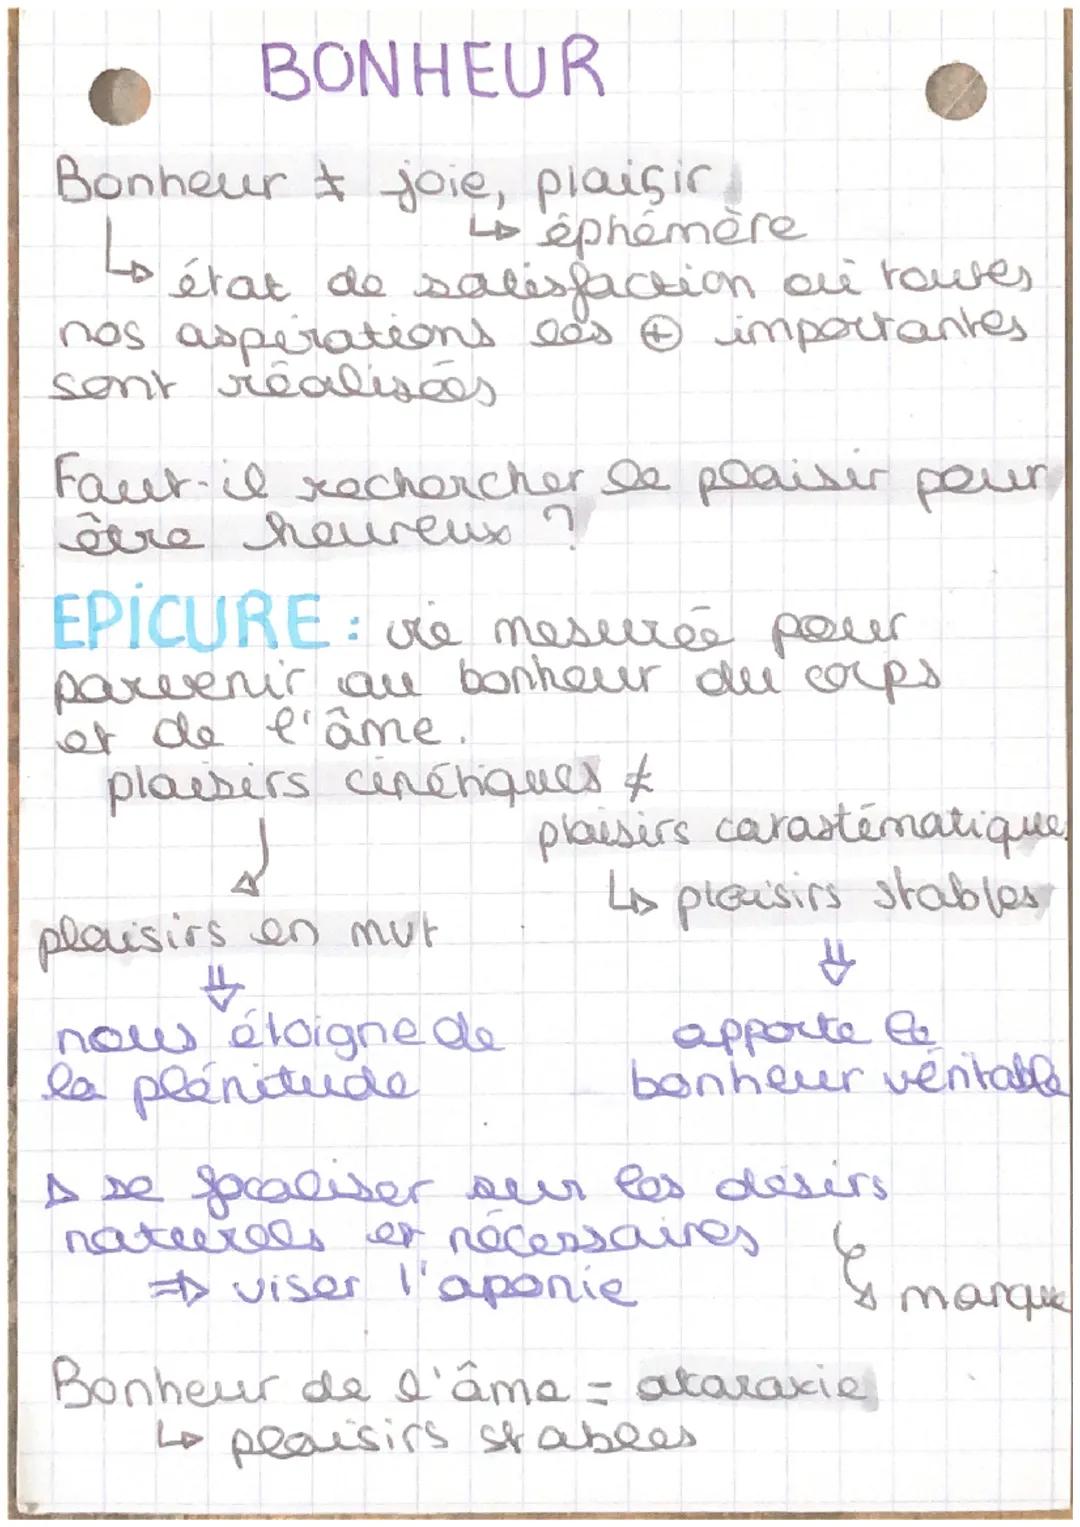 BONHEUR
Bonheur ≠ joie, plaisir
↳ éphémère
↳ état de satisfaction où toutes
nos aspirations les ⊕ importantes
sont réalisées
Faut-il rechercher le plaisir pour
être heureux ?
EPICURE : vie mesurée pour
parvenir au bonheur du corps
et de l'âme.
plaisirs cinétiques ≠
plaisirs carastématique
↳ plaisirs stables
plaisirs en mvt
⇓ ⇓
nous éloigne de
la plénitude
apporte le
bonheur véritable
▷ se focaliser sur les désirs
naturels et nécessaires
↳ manque
⇒ viser l'aponie
Bonheur de l'âme = ataraxie
↳ plaisirs stables